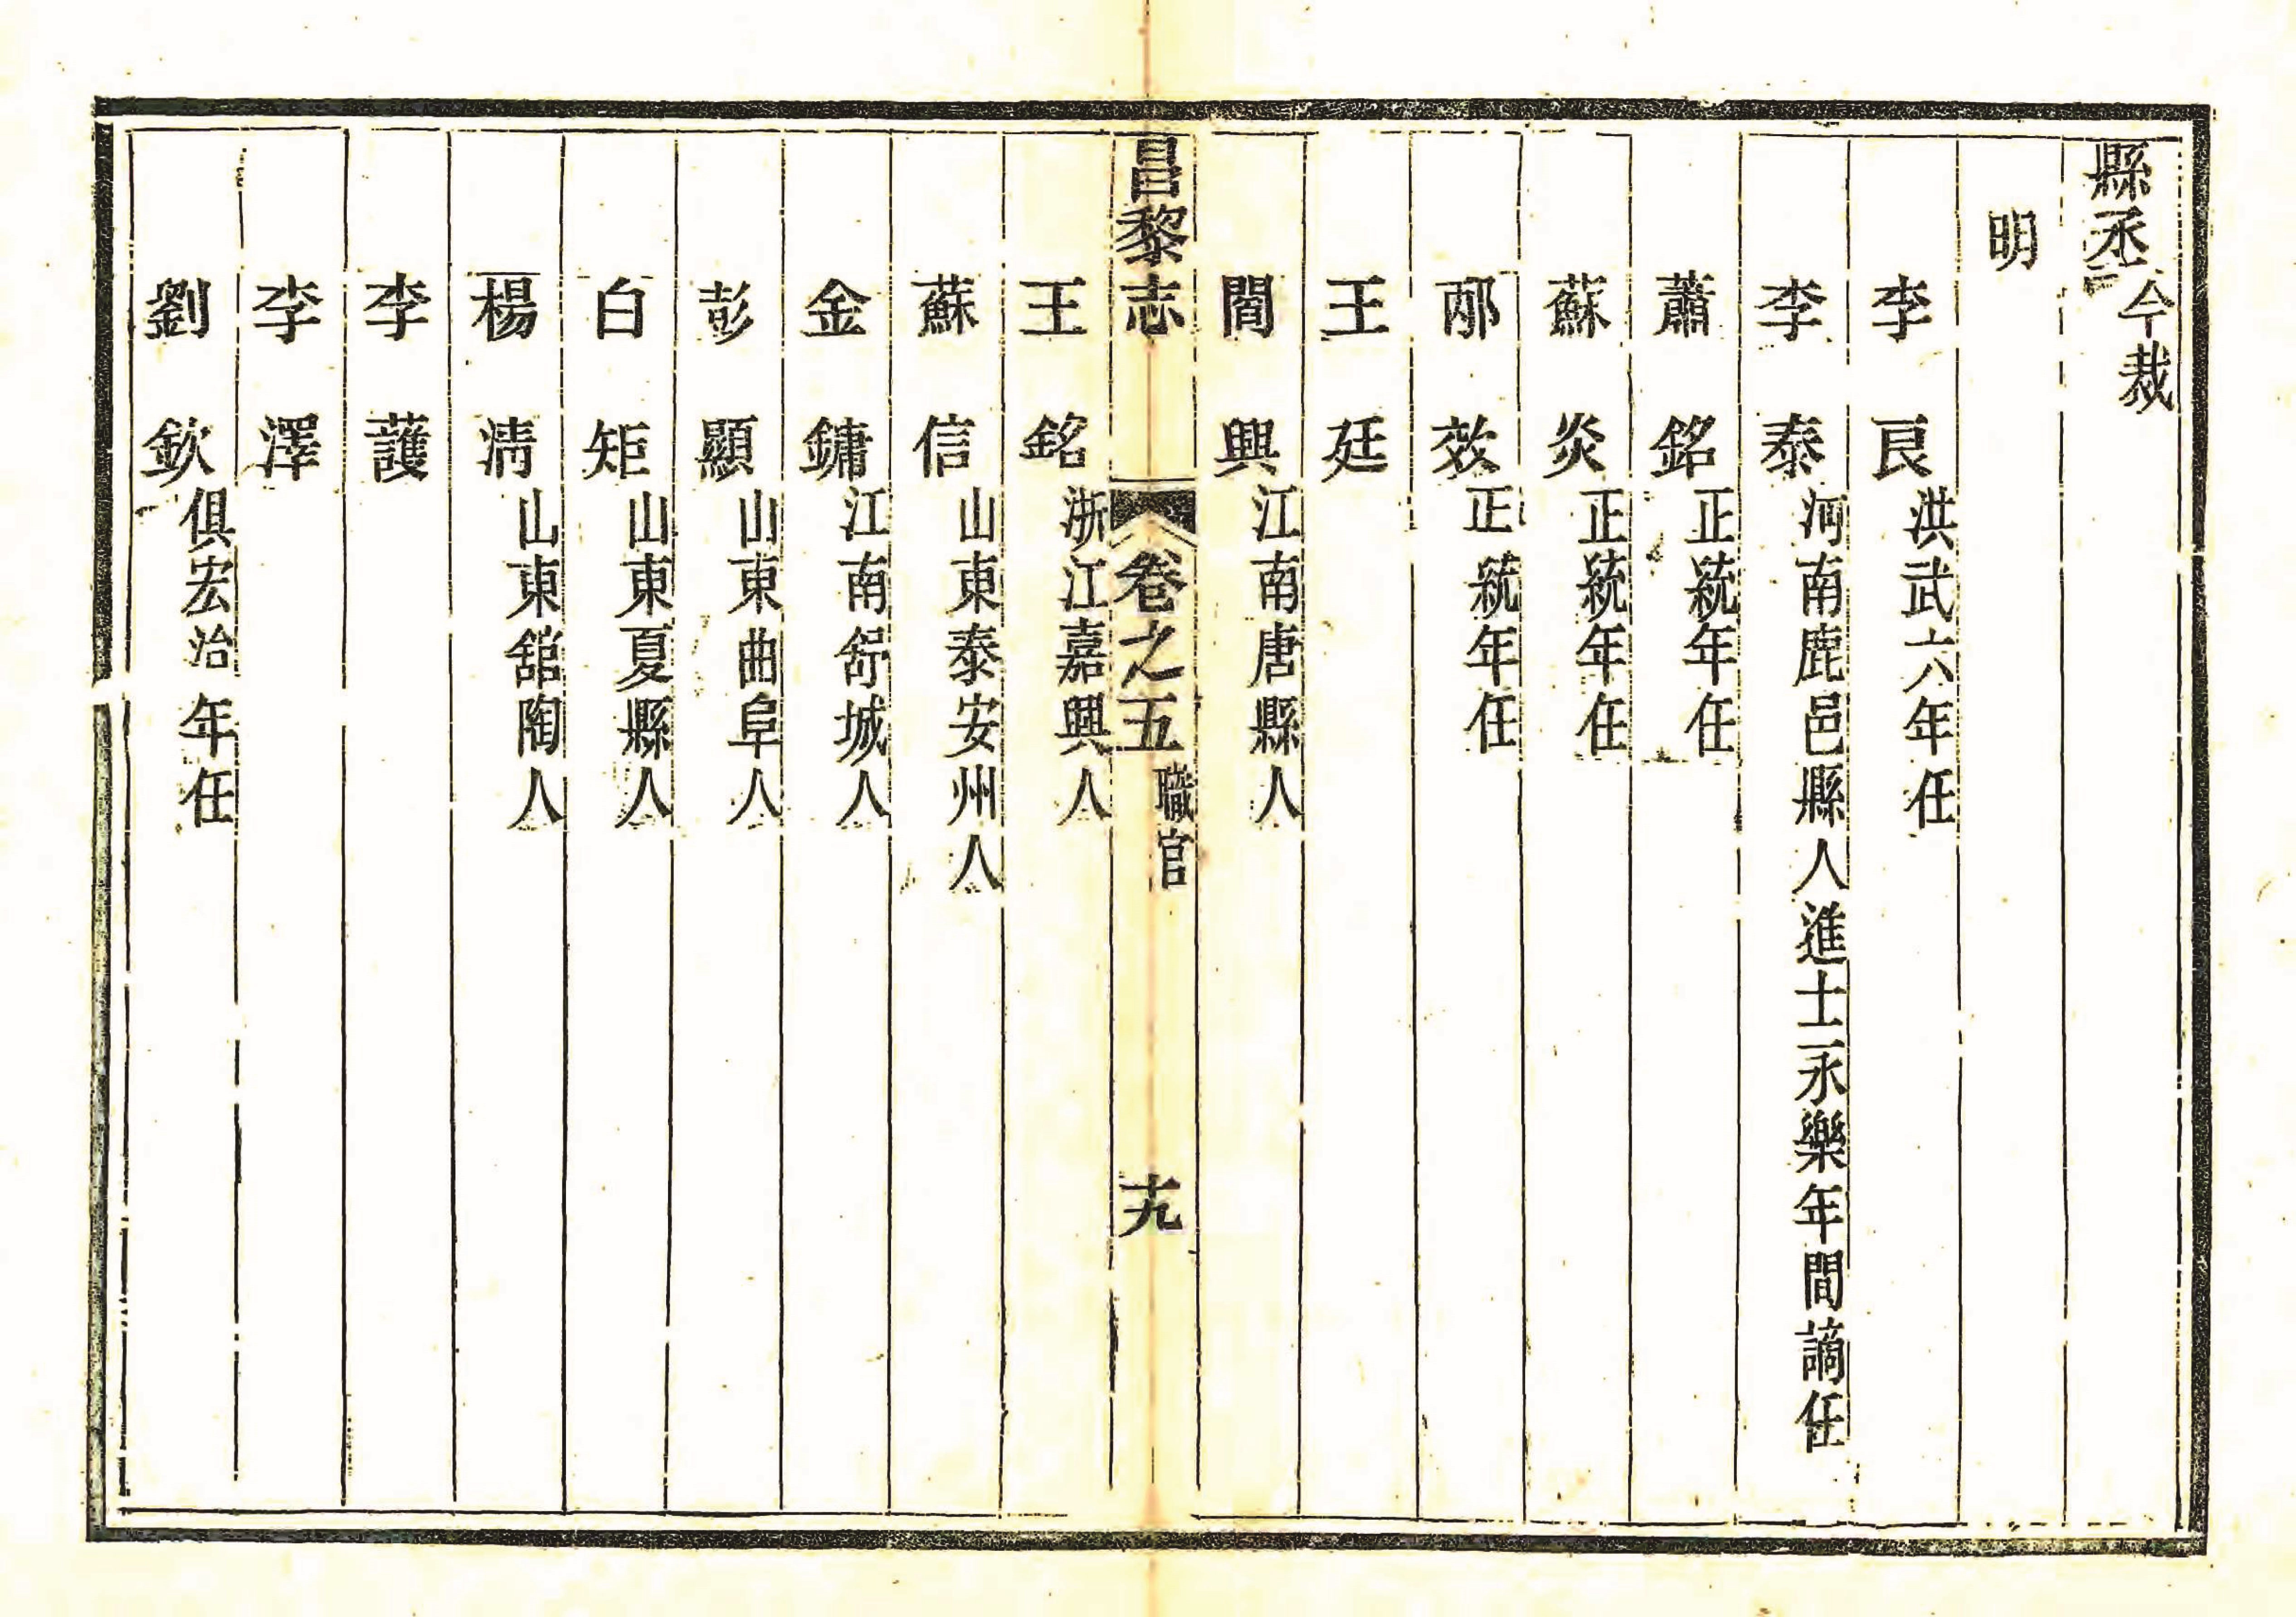 縣丞今裁
明
李良洪武六年任
李泰河南鹿邑縣人進士永樂年間謫任
蕭銘正統年任
蘇炎正統年任
邴效正統年任
王廷
閻興江南唐縣人
昌黎志 卷之五 職官 十九
王銘浙江嘉興人
蘇信山東泰安州人
金鏞江南舒城人
彭顯山東曲阜人
白矩山東夏縣人
楊清山東舘陶人
李護
李澤
劉欽俱宏治年任